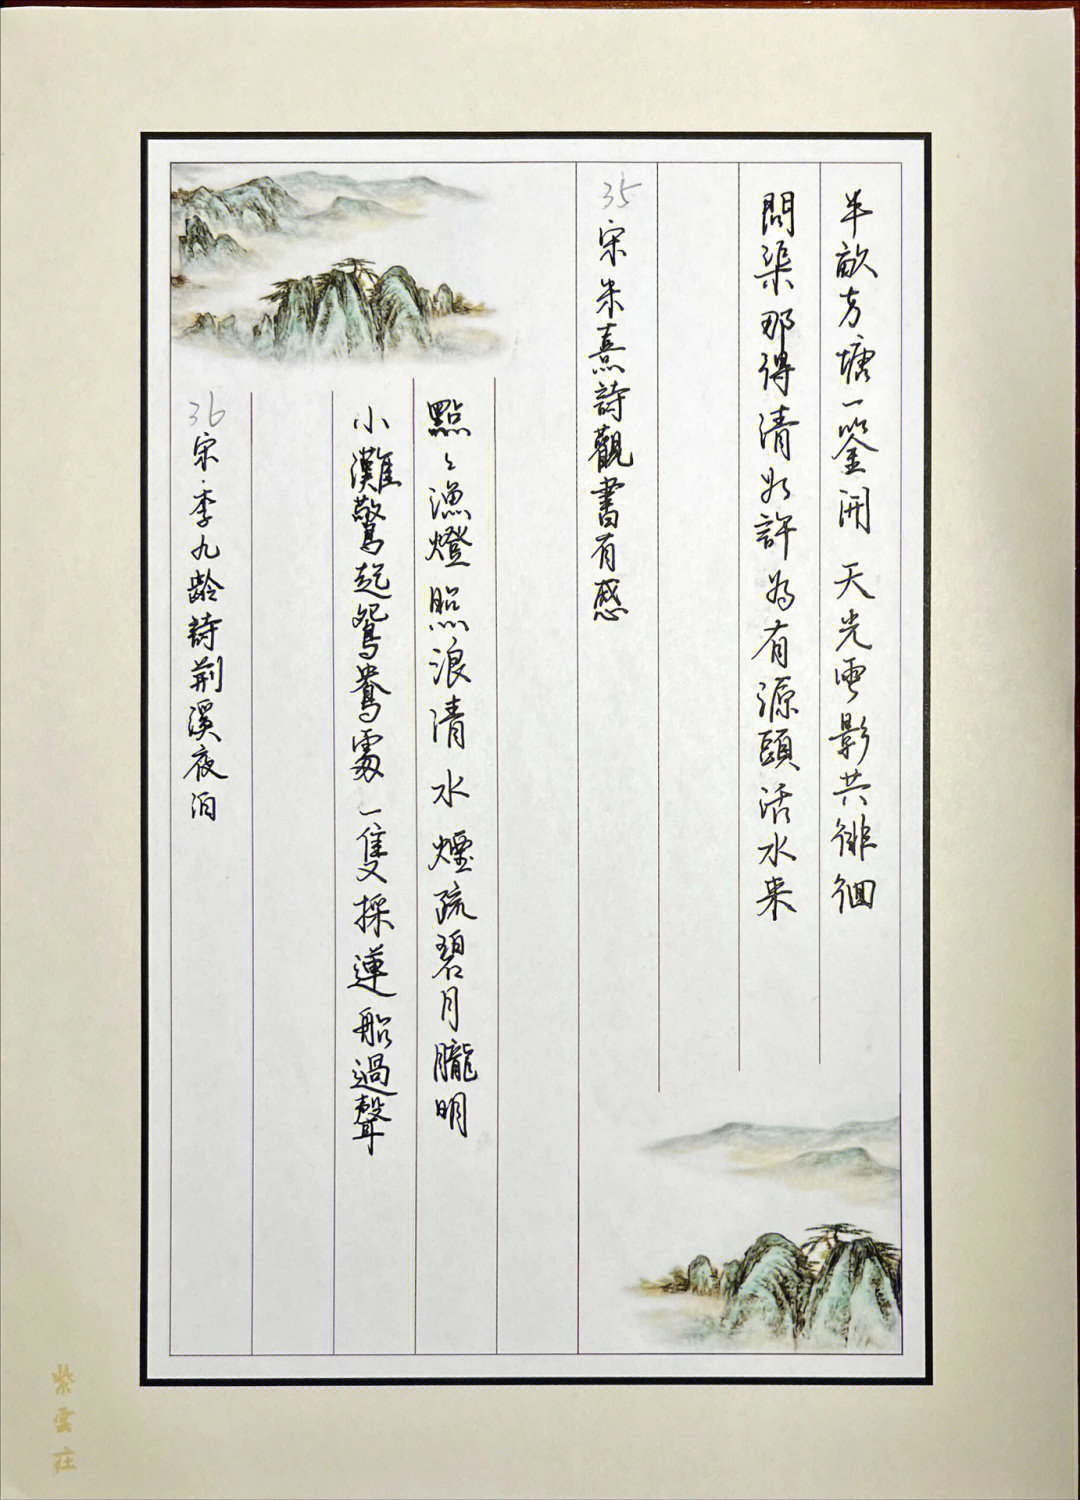 半畝方塘一鑒開 天光雲影共徘徊
問渠那得清如許 為有源頭活水來
35
宋朱熹詩觀書有感
點々漁燈照浪清 水煙疏碧月朧明
小灘驚起鴛鴦處 一隻採蓮船過聲
36
宋·李九齡詩荆溪夜泊
紫雲莊